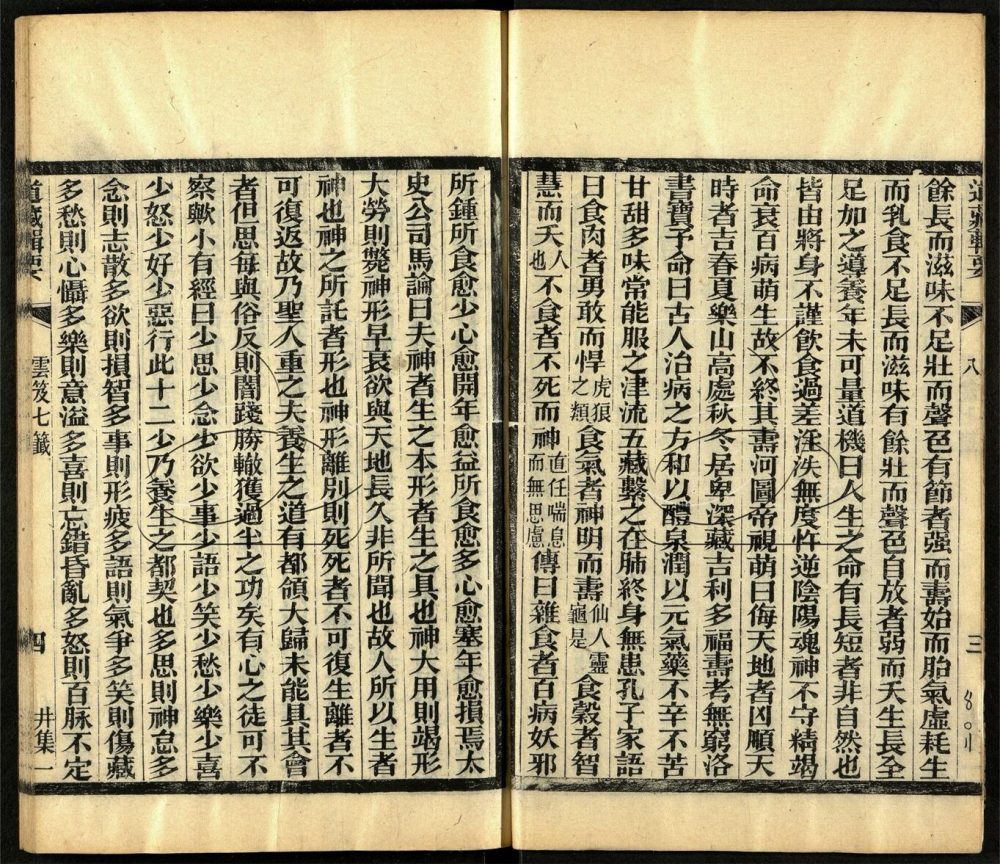 道藏輯要
八
三
餘長而滋味不足壯而聲色有節者强而壽始而胎氣虛耗生
而乳食不足長而滋味有餘壯而聲色自放者弱而夭生長全
足加之導養年未可量道機曰人生之命有長短者非自然也
皆由將身不謹飲食過差淫泆無度忤逆陰陽魂神不守精竭
命衰百病萌生故不終其壽河圖帝視萌曰侮天地者凶順天
時者吉春夏樂山高處秋冬居卑深藏吉利多福壽考無窮洛
書寶予命曰古人治病之方和以醴泉潤以元氣藥不辛不苦
甘甜多味常能服之津流五藏繫之在肺終身無患孔子家語
曰食肉者勇敢而悍虎狼之類食氣者神明而壽仙人靈龜是食穀者智
慧而夭人也不食者不死而神直任喘息而無思慮傳曰雜食者百病妖邪
所鍾所食愈少心愈開年愈益所食愈多心愈塞年愈損焉太
史公司馬論曰夫神者生之本形者生之具也神大用則竭形
大勞則斃神形早衰欲與天地長久非所聞也故人所以生者
神也神之所託者形也神形離別則死死者不可復生離者不
可復返故乃聖人重之夫養生之道有都領大歸未能具其會
者但思每與俗反則闇踐勝轍獲過半之功矣有心之徒可不
察歟小有經曰少思少念少欲少事少語少笑少愁少樂少喜
少怒少好少惡行此十二少乃養生之都契也多思則神怠多
念則志散多欲則損智多事則形疲多語則氣爭多笑則傷藏
多愁則心懾多樂則意溢多喜則忘錯昏亂多怒則百脉不定
道藏輯要
雲笈七籤
四
井集一